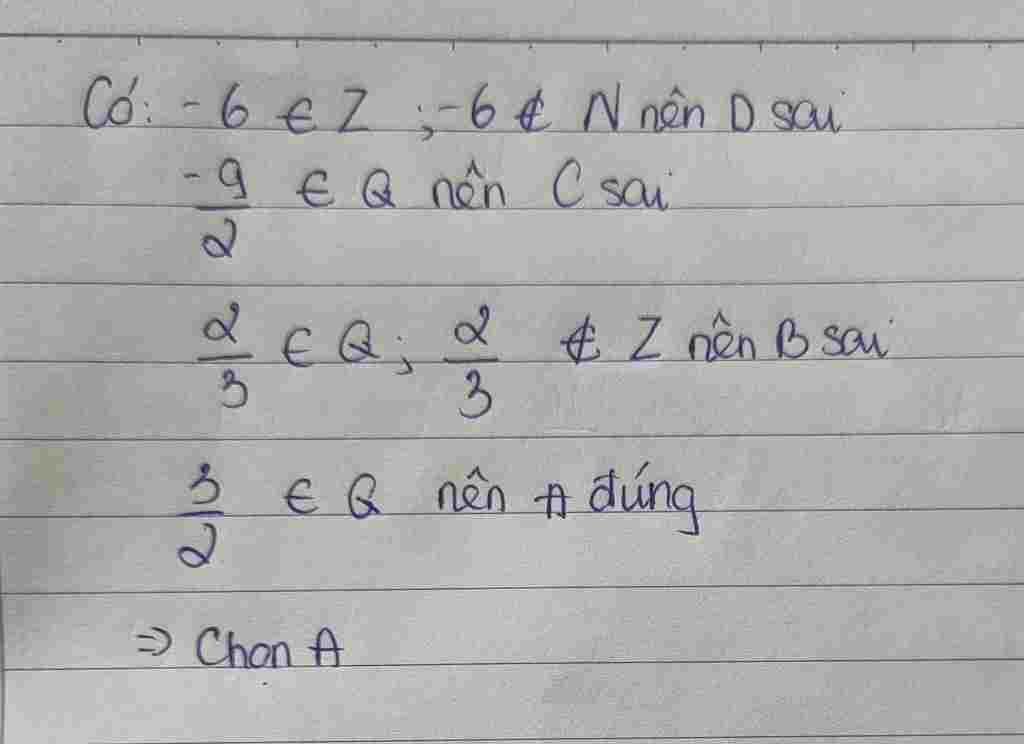 Có: -6 ∈ Z ; -6 ∉ N nên D sai
-9/2 ∈ Q nên C sai
2/3 ∈ Q; 2/3 ∉ Z nên B sai
3/2 ∈ Q nên A đúng
⇒ Chọn A